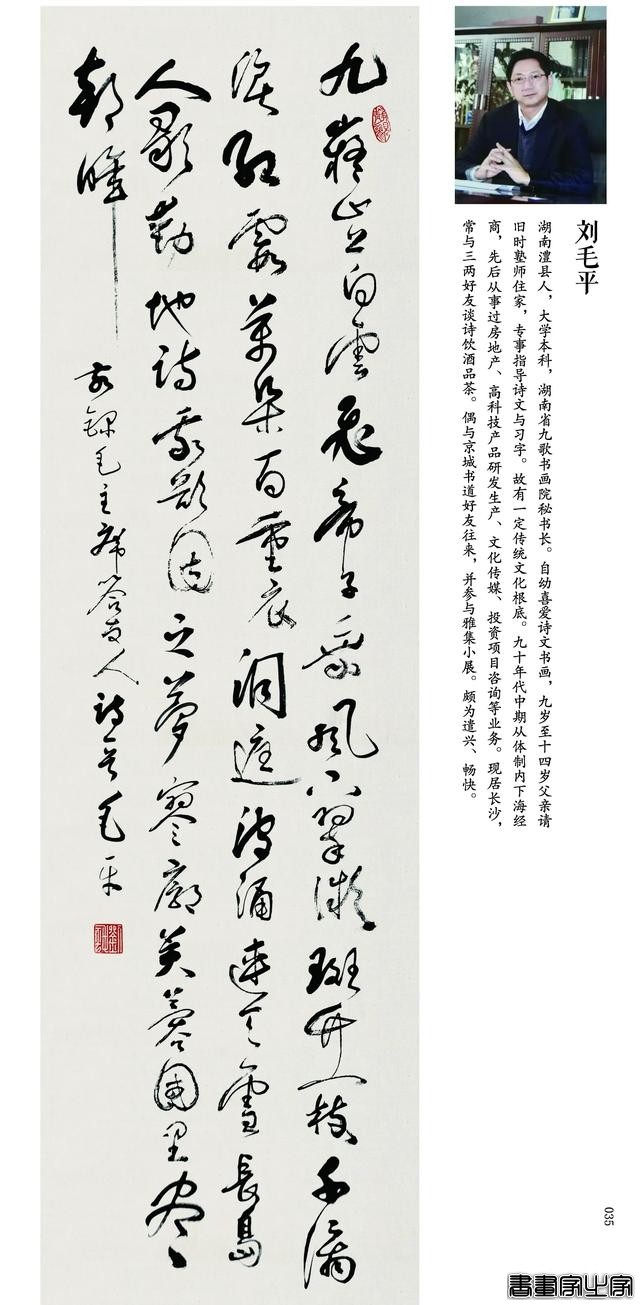 刘毛平
湖南澧县人，大学本科，湖南省九歌书画院秘书长。自幼喜爱诗文书画，九岁至十四岁父亲请
旧时塾师住家，专事指导诗文与习字。故有一定传统文化根底。九十年代中期从体制内下海经
商，先后从事过房地产、高科技产品研发生产、文化传媒、投资项目咨询等业务。现居长沙，
常与三两好友谈诗饮酒品茶。偶与京城书道好友往来，并参与雅集小展。颇为遣兴、畅快。
九嶷山上白雲飛帝子乘風下翠微斑竹一枝千滴
淚紅霞萬朵百重衣洞庭波涌連天雪長島
人歌動地詩我欲因之夢寥廓芙蓉國里盡
朝暉
錄毛主席答友人詩 毛平
035
書畫家之家